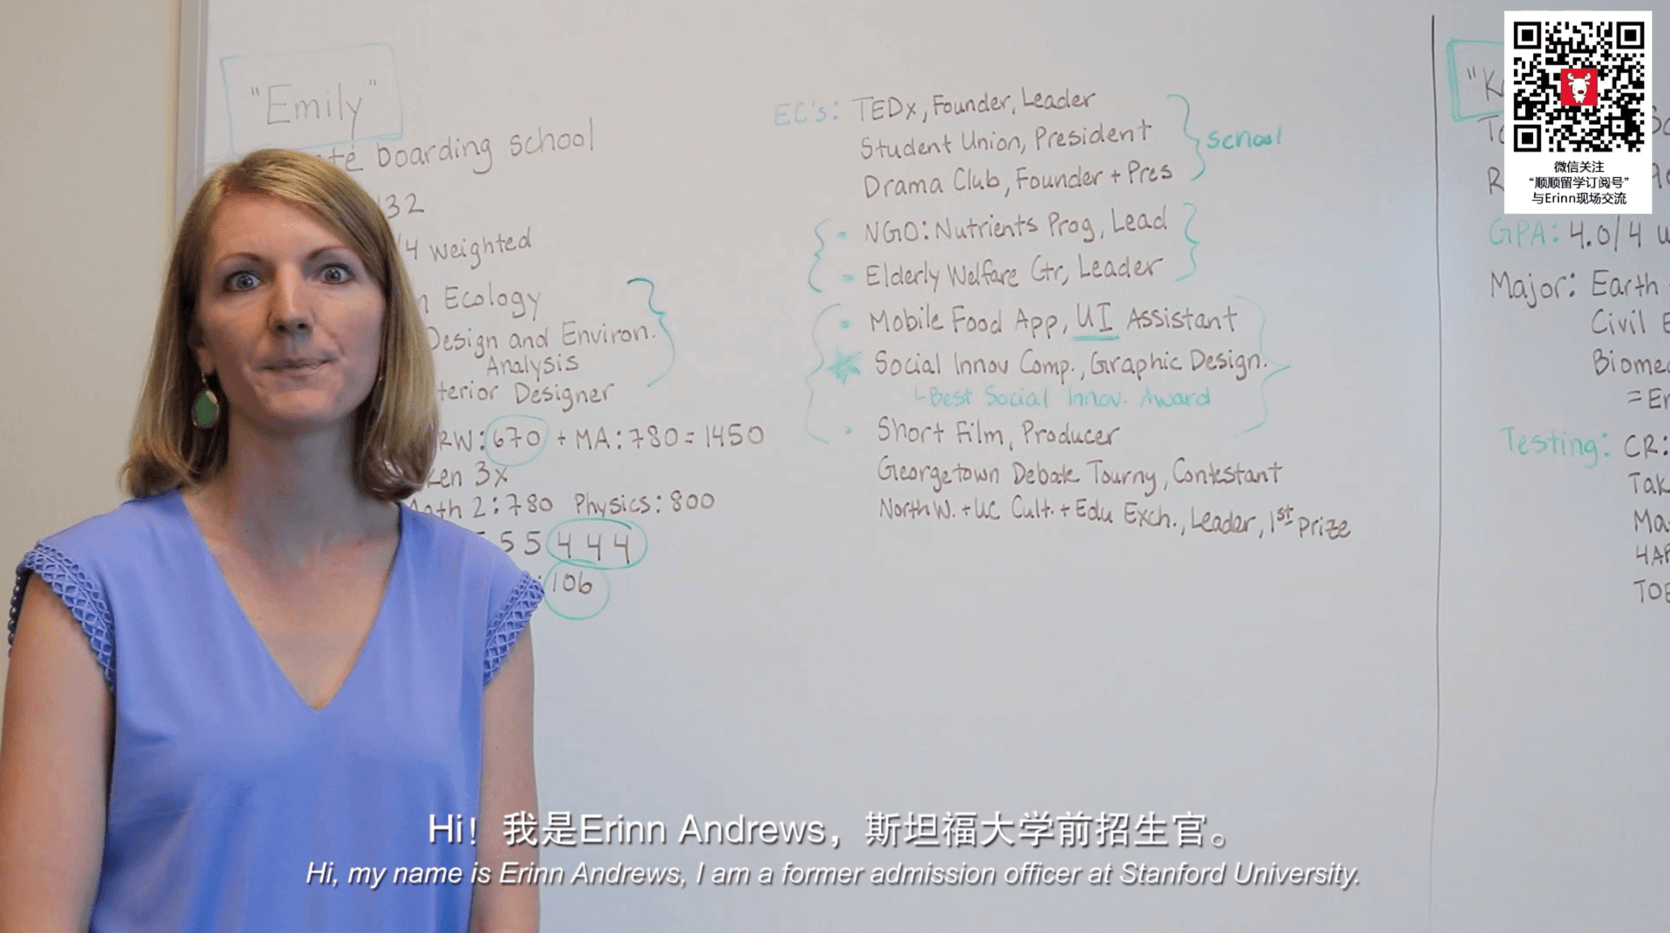 "Emily"
boarding school
32
/4 weighted
Ecology
Design and Environ.
Analysis
terior Designer
RW: 670 + MA: 780 = 1450
ken 3x
Math 2: 780 Physics: 800
5 5 4 4 4
106
EC's: TEDx, Founder, Leader
Student Union, President
Drama Club, Founder + Pres
school
NGO: Nutrients Prog, Lead
Elderly Welfare Ctr, Leader
Mobile Food App, UI Assistant
Social Innov Comp., Graphic Design.
Best Social Innov. Award
Short Film, Producer
Georgetown Debate Tourny, Contestant
North W. + UC Cult. + Edu Exch., Leader, 1st prize
GPA: 4.0/4
Major: Earth
Civil E
Biomed
= En
Testing: CR:
Tak
Ma
4AP
TOE
微信关注
“顺顺留学订阅号”
与Erinn现场交流
Hi！我是Erinn Andrews，斯坦福大学前招生官。
Hi, my name is Erinn Andrews, I am a former admission officer at Stanford University.